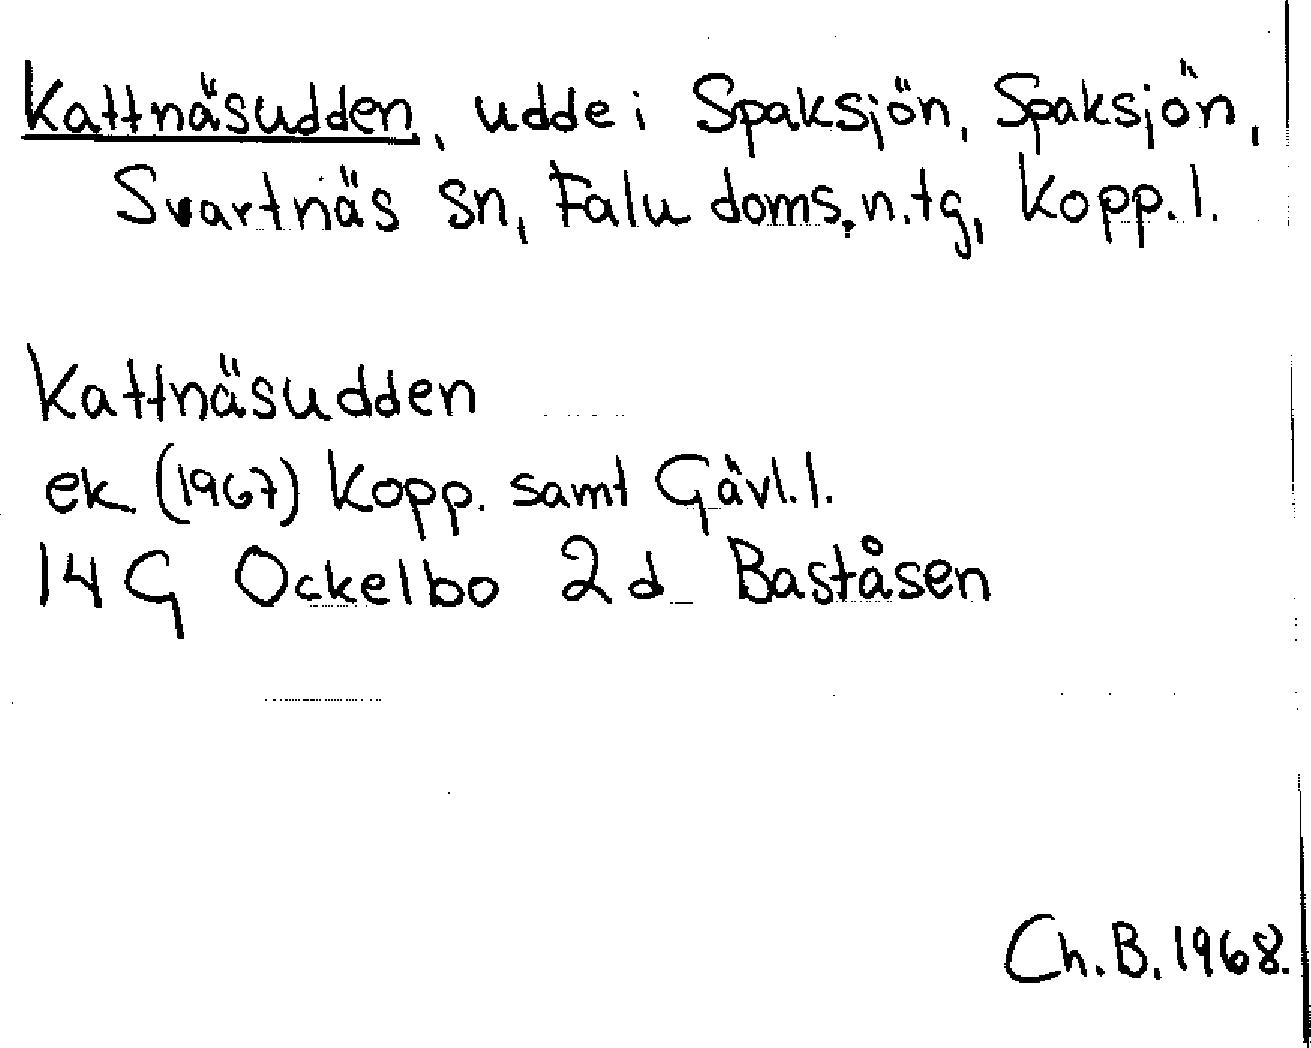 Kattnäsudden, udde i Spaksjön, Spaksjön,
Svartnäs sn, Falu doms.n.tg, Kopp.l.
Kattnäsudden
ek. (1967) Kopp. samt Gävl.l.
14 G Ockelbo 2 d Baståsen
Ch.B. 1968.